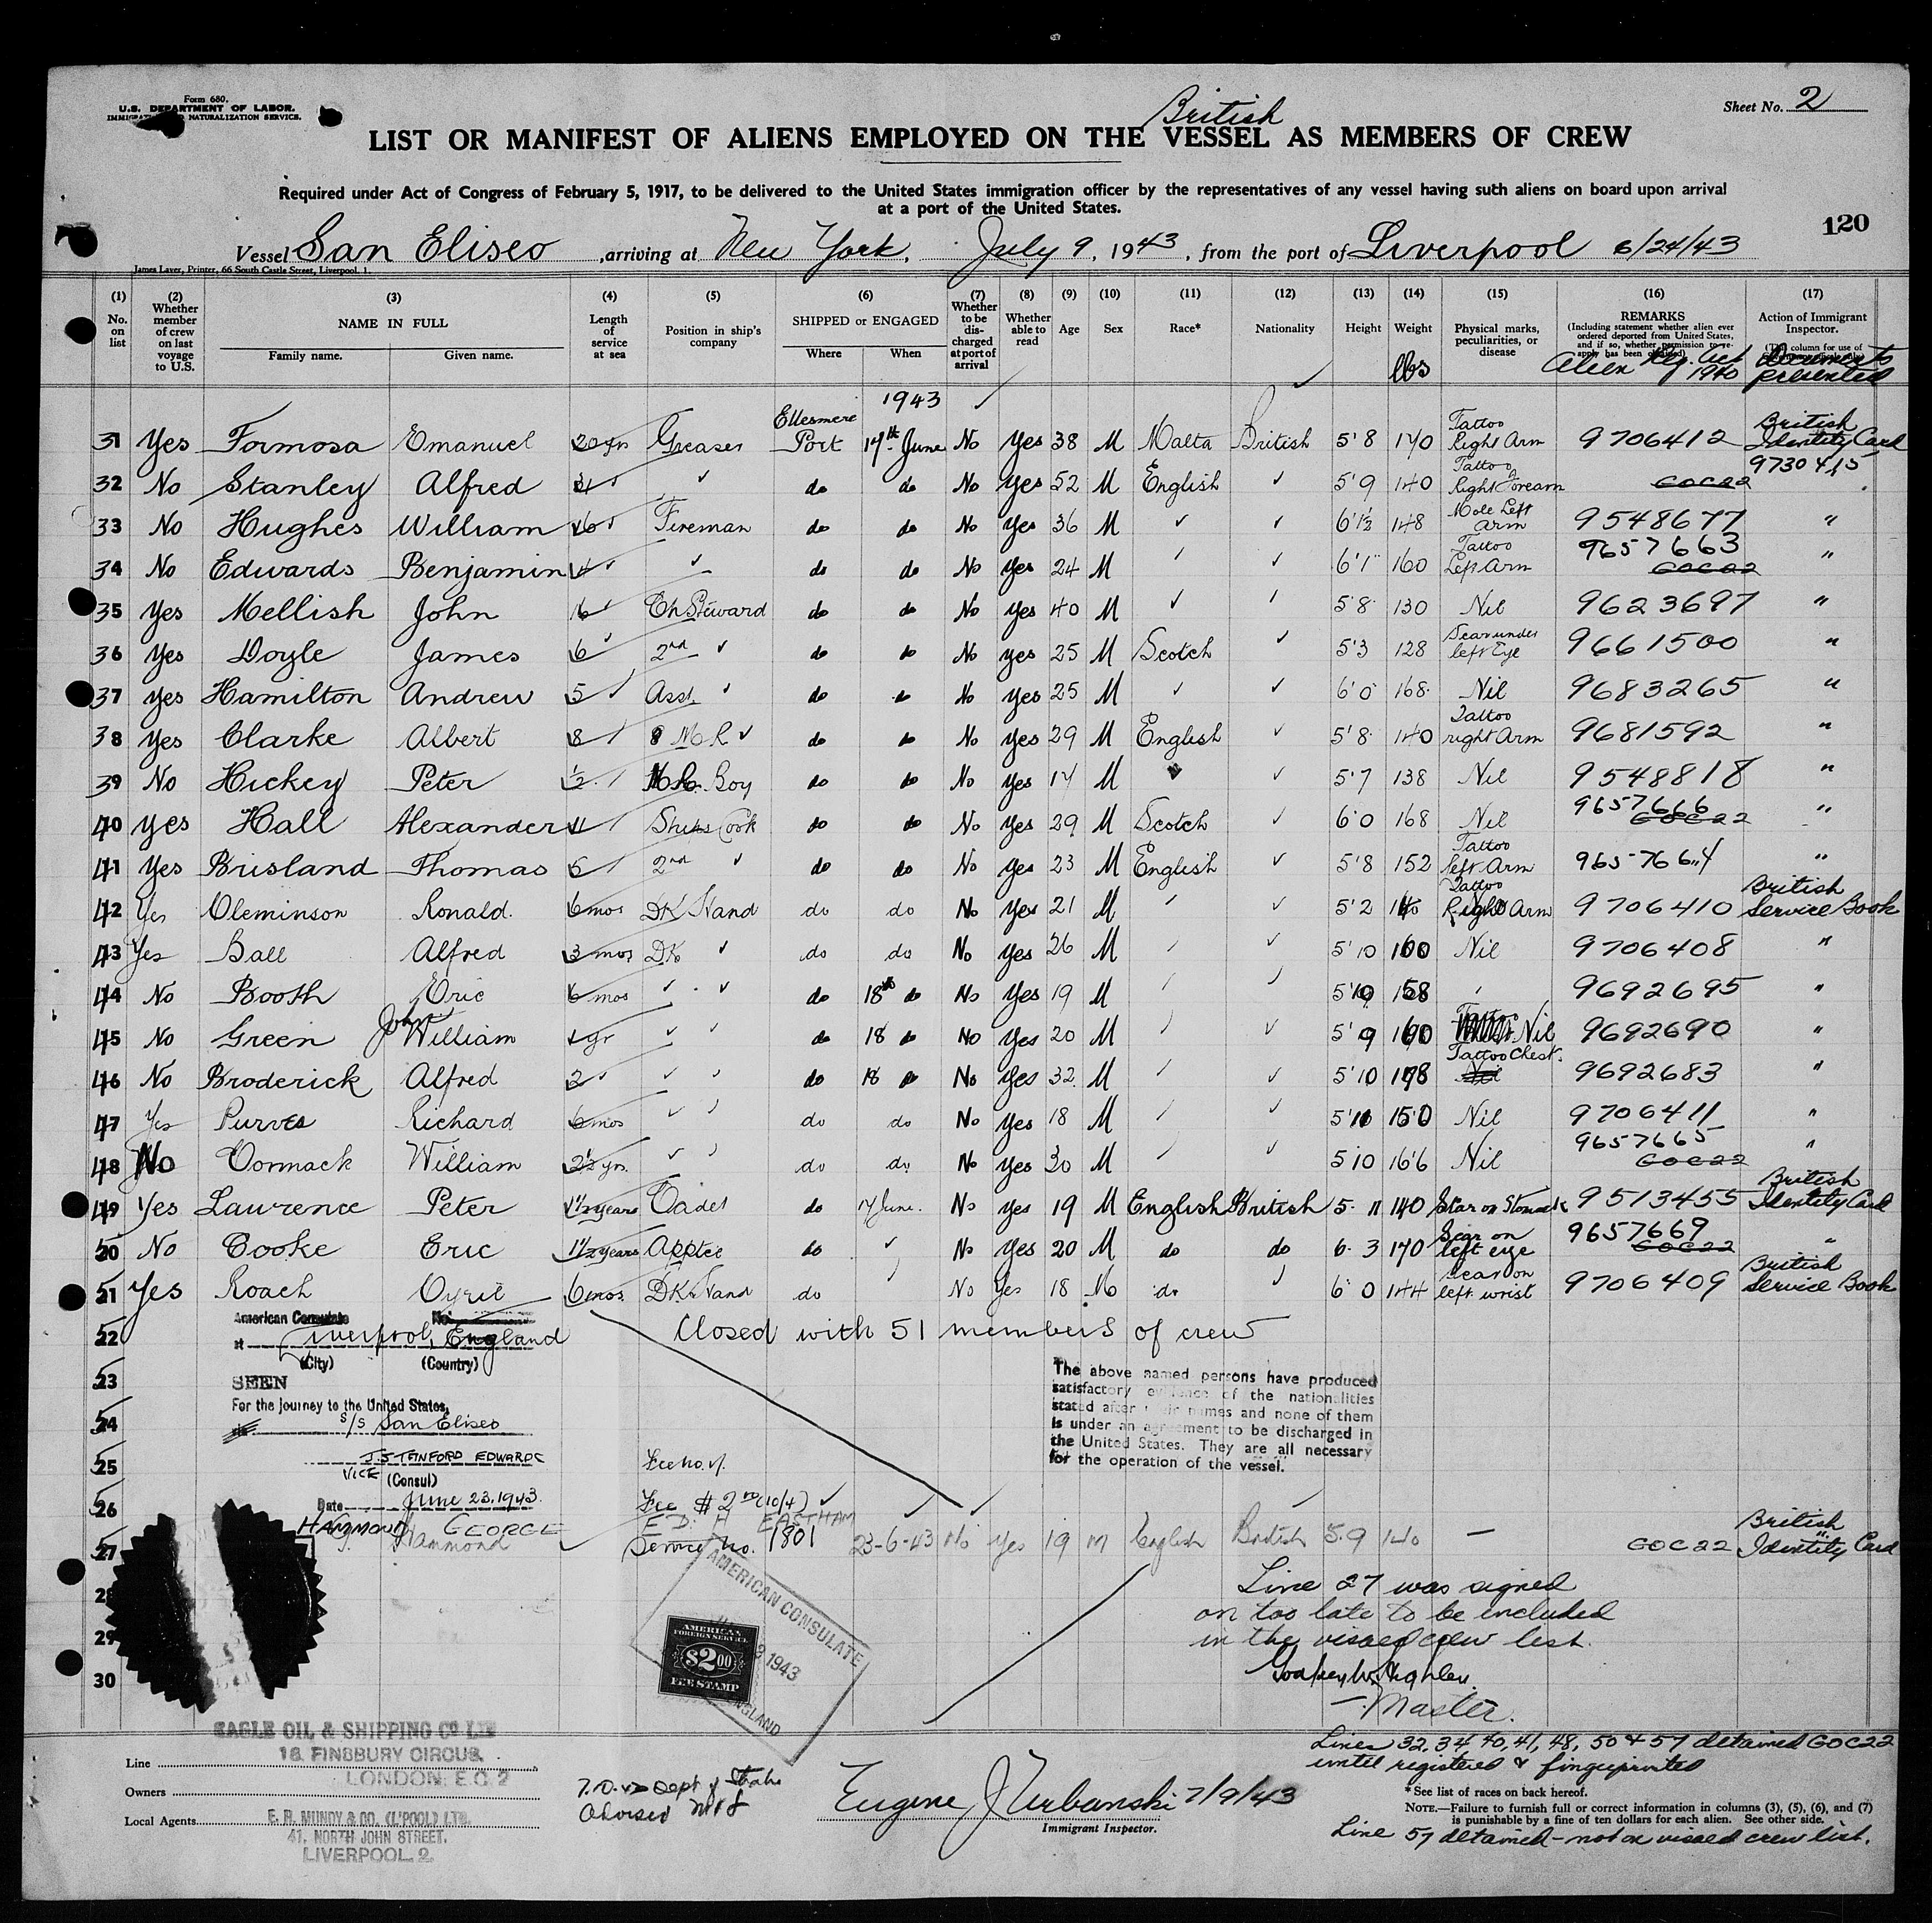 Form 680.
U.S. DEPARTMENT OF LABOR.
NATURALIZATION SERVICE.
Sheet No. 2
British
LIST OR MANIFEST OF ALIENS EMPLOYED ON THE VESSEL AS MEMBERS OF CREW
Required under Act of Congress of February 5, 1917, to be delivered to the United States immigration officer by the representatives of any vessel having such aliens on board upon arrival
at a port of the United States.
120
Vessel San Eliseo, arriving at New York, July 9, 1943, from the port of Liverpool 6/24/43
James Laver, Printer, 66 South Castle Street, Liverpool, 1.
(1) No. on list (2) Whether member of crew on last voyage to U.S. (3) NAME IN FULL Family name. Given name. (4) Length of service at sea (5) Position in ship's company (6) SHIPPED or ENGAGED Where When (7) Whether to be discharged at port of arrival (8) Whether able to read (9) Age (10) Sex (11) Race* (12) Nationality (13) Height (14) Weight (15) Physical marks, peculiarities, or disease (16) REMARKS (Including statement whether alien ever ordered deported from United States, and if so, whether permission to re-apply has been obtained) (17) Action of Immigrant Inspector.
lbs Alien Reg. Act 1940 Documents presented
1943
31 Yes Formosa Emanuel 20 yrs Greaser Ellesmere Port 17th June No Yes 38 M Malta British 5'8 170 Tattoo Right Arm 9706412 British Identity Card
32 No Stanley Alfred ✓ do do No Yes 52 M English ✓ 5'9 140 Tattoo Right Forearm 9730415 GOC22
33 No Hughes William 16 ✓ Fireman do do No Yes 36 M ✓ ✓ 6'1½ 148 Mole Left Arm 9548677 "
34 No Edwards Benjamin 4 ✓ ✓ do do No Yes 24 M ✓ ✓ 6'1 160 Tattoo Left Arm 9657663 GOC22 "
35 Yes Mellish John 16 ✓ Ch Steward do do No Yes 40 M ✓ ✓ 5'8 130 Nil 9623697 "
36 Yes Doyle James 6 ✓ 2nd ✓ do do No Yes 25 M Scotch ✓ 5'3 128 Scar under left Eye 9661500 "
37 Yes Hamilton Andrew 5 ✓ Asst. ✓ do do No Yes 25 M ✓ ✓ 6'0 168 Nil 9683265 "
38 Yes Clarke Albert 8 ✓ do do No Yes 29 M English ✓ 5'8 140 Tattoo right Arm 9681592 "
39 No Hickey Peter ½ Boy do do No Yes 17 M ✓ 5'7 138 Nil 9548818 "
40 Yes Hall Alexander 11 Ships Cook do do No Yes 29 M Scotch ✓ 6'0 168 Nil 9657666 GOC22 "
41 Yes Brisland Thomas 5 2nd ✓ do do No Yes 23 M English ✓ 5'8 152 Tattoo left Arm 9657664 "
42 Yes Cleminson Ronald. 6 mos DK Hand do do No Yes 21 M ✓ ✓ 5'2 Tattoo Right Arm 9706410 British Service Book
43 Yes Ball Alfred 3 mos DK ✓ do do No Yes 26 M ✓ ✓ 5'10 160 Nil 9706408 "
44 No Booth Eric 6 mos ✓ ✓ do 18th do No Yes 19 M ✓ ✓ 158 9692695 "
45 No Green John William 1 yr ✓ ✓ do 18 do No Yes 20 M ✓ ✓ 5'9 Nil 9692690 "
46 No Broderick Alfred 2 ✓ ✓ ✓ do 18 do No Yes 32 M ✓ ✓ 5'10 178 Tattoo Chest. Nil 9692683 "
47 Yes Purves Richard 6 mos ✓ ✓ do do No Yes 18 M ✓ ✓ 150 Nil 9706411 "
48 No Cormack William 2½ yrs. ✓ ✓ do do No Yes 30 M ✓ ✓ 5'10 166 Nil 9657665 GOC22 "
49 Yes Lawrence Peter 1½ years Cadet do 17 June. No Yes 19 M English British 5. 11 140 Scar on Stomach 9513455 British Identity Card
50 No Cooke Eric 1½ years Apptce do ✓ No Yes 20 M do do 6. 3 170 Scar on left eye 9657669 GOC22 "
51 Yes Roach Cyril 6 mos. DK Hand do ✓ No Yes 18 M do ✓ 6 0 144 Scar on left wrist 9706409 British Service Book
22 Closed with 51 members of crew
American Consulate No.
at Liverpool, England
(City) (Country)
23 SEEN
For the journey to the United States,
24 S/S San Eliseo
The above named persons have produced
satisfactory evidence of the nationalities
stated after their names and none of them
is under an agreement to be discharged in
the United States. They are all necessary
for the operation of the vessel.
25 J. STANFORD EDWARDS
VICE (Consul)
Fee No.
26 Date June 23, 1943.
Fee $2
E.D. H EASTHAM
27 HAMMOND GEORGE
Hammond
Service No. 1801 23-6-43 No Yes 19 M English British 5.9 140 — GOC22 British Identity Card
28 Line 27 was signed
on too late to be included
29 in the visaed crew list.
30
Master.
AMERICAN CONSULATE
1943
ENGLAND
AMERICAN
FOREIGN SERVICE
$2.00
FEE STAMP
EAGLE OIL & SHIPPING CO LTD
16. FINSBURY CIRCUS.
LONDON. E.C. 2
Line
Owners
Local Agents E. R. MUNDY & CO. (L'POOL) LTD.
41, NORTH JOHN STREET.
LIVERPOOL. 2.
Dept of State
Advised
Eugene J Urbanski 7/9/43
Immigrant Inspector.
Lines 32, 34, 40, 41, 48, 50 & 57 detained GOC22
until registered & fingerprinted
*See list of races on back hereof.
NOTE.—Failure to furnish full or correct information in columns (3), (5), (6), and (7)
is punishable by a fine of ten dollars for each alien. See other side.
Line 57 detained - not on visaed crew list.